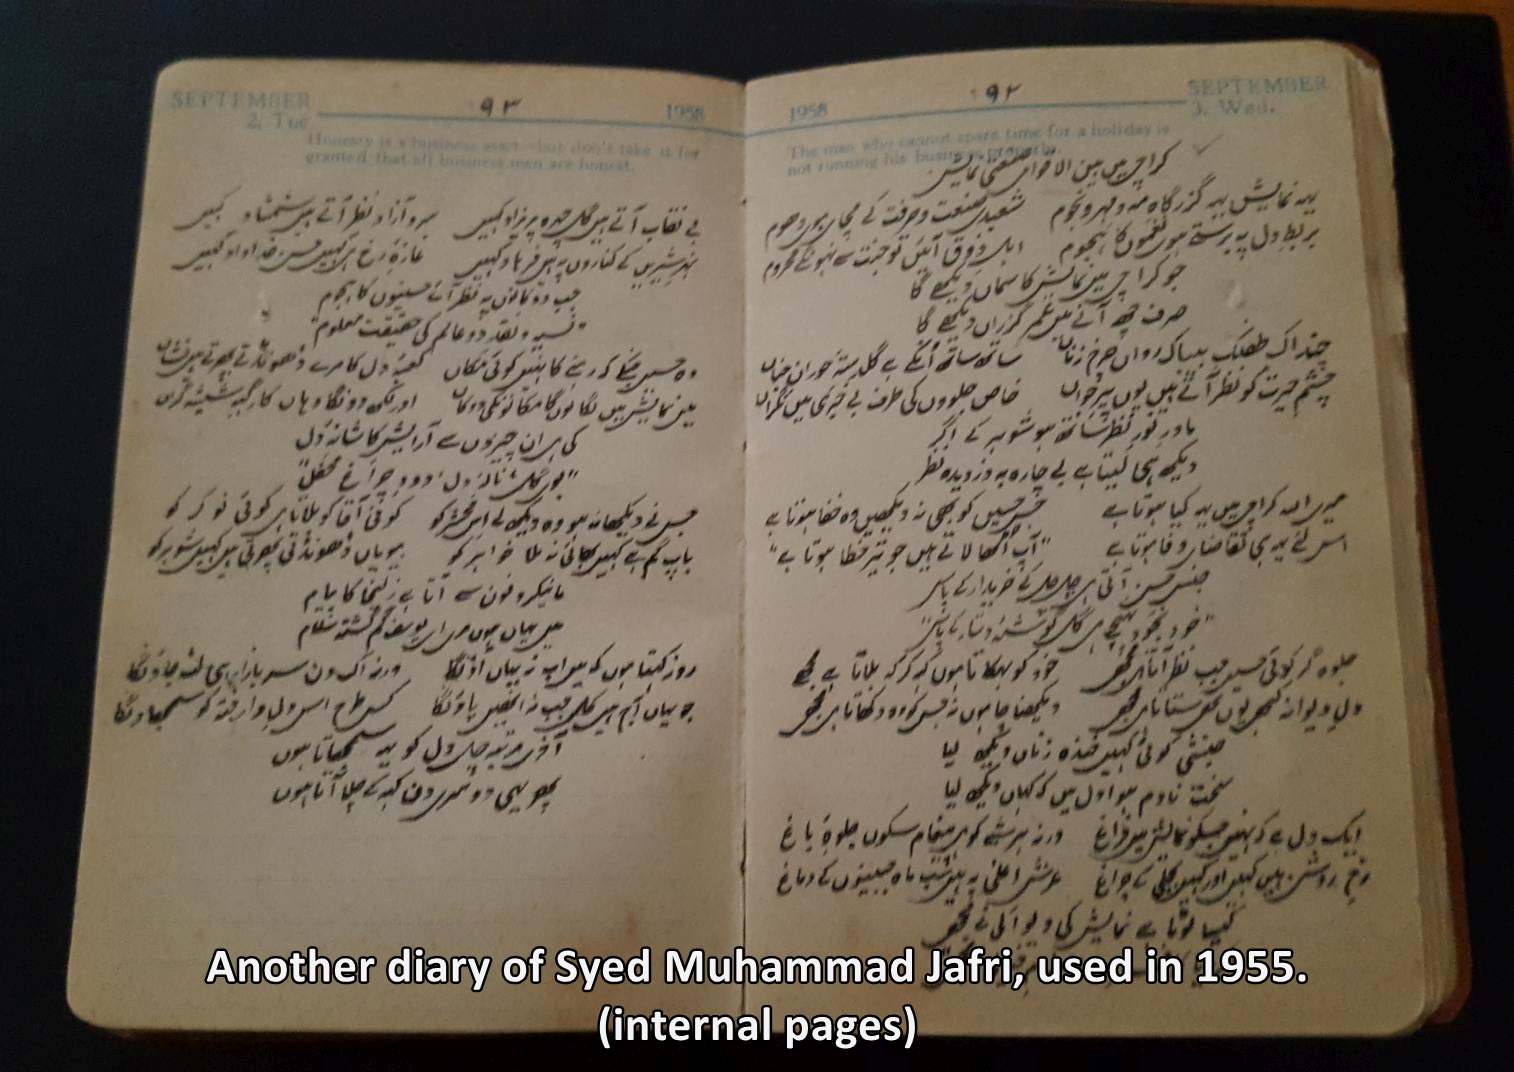 SEPTEMBER
1958
2. Tue
۹۳
Honesty is a business asset—but don't take it for
granted that all business men are honest.
1958
SEPTEMBER
3. Wed.
۹۲
The man who cannot spare time for a holiday is
not running his business properly.
کراچی میں بین الاقوامی صنعتی نمائش
یہ نمائش یہ گزرگاہ مہ و مہر و نجوم شعبدے صنعت و حرفت کے مچاتی ہوئی دھوم
بربط دل پہ برستے ہوئے نغموں کا ہجوم اہل ذوق آئیں تو جنت سے نہ ہونگے محروم
جو کراچی میں نمائش کا سماں دیکھے گا
صرف چھ آنے میں عمر گزراں دیکھے گا
چند اک طفلک بیباک رواں چرخ زناں ساتھ ساتھ انکے ہے گلدستۂ حوران جناں
چشم حیرت کو نظر آتے ہیں یوں پیر و جواں خاص جلووں کی طرف بے خبری میں نگراں
مادر نور نظر ساتھ ہو شوہر کے اگر
دیکھ ہی لیتا ہے بے چارہ بہ دزدیدہ نظر
میرے اللہ کراچی میں یہ کیا ہوتا ہے جس حسیں کو بھی نہ دیکھیں وہ خفا ہوتا ہے
اس لئے یہ بھی تقاضائے وفا ہوتا ہے "آپ اٹھا لاتے ہیں جو تیر خطا ہوتا ہے"
جنس حسن آتی ہے چل چل کے خریدار کے پاس
"خود بخود پہنچے ہے گل گوشۂ دستار کے پاس"
جلوہ گر کوئی حسیں جب نظر آتا ہے مجھے خود کو بہکاتا ہوں کہہ کر کہ بلاتا ہے مجھے
دل دیوانہ کبھی یوں بھی ستاتا ہے مجھے دیکھنا چاہوں نہ جس کو وہ دکھاتا ہے مجھے
حبشی کوئی کہیں خندہ زناں دیکھ لیا
سخت نادم ہوا دل میں کہ کہاں دیکھ لیا
ایک دل ہے کہ نہیں جسکو نمائش میں فراغ ورنہ ہر شے کو ہے مقام سکوں جلوۂ باغ
رخ روشن ہیں کہیں اور کہیں بجلی کے چراغ عرش اعلیٰ پہ ہیں سب ماہ جبینوں کے دماغ
کیسا لوٹا ہے نمائش کی دیوالی نے مجھے
بے نقاب آتے ہیں گل چہرہ پریزاد کہیں سرو آزاد نظر آتے ہیں شمشاد کہیں
نہر شیریں کے کناروں پہ ہیں فرہاد کہیں غازۂ رخ ہے کہیں حسن خداداد کہیں
جب دوکانوں پہ نظر آئے حسینوں کا ہجوم
"نسیہ و نقد دو عالم کی حقیقت معلوم"
وہ حسیں جنکے کہ رہنے کا نہیں کوئی مکاں کعبۂ دل کا مرے ڈھونڈتے پھرتے ہیں نشاں
میں نمائش میں لگا لونگا مکانونکی دوکاں اور رکھ دونگا وہاں کارگہ شیشہ گراں
کی ہے ان چیزوں سے آرائش کاشانۂ دل
"بوئے گل نالۂ دل دود چراغ محفل"
جس نے دیکھا نہ ہو وہ دیکھ لے اس محشر کو کوئی آقا کو بلاتا ہے کوئی نوکر کو
باپ گم ہے کہیں بھائی نہ ملا خواہر کو بیویاں ڈھونڈتی پھرتی ہیں کہیں شوہر کو
مائیکروفون سے آتا ہے زلیخا کا پیام
میں یہاں ہوں مرے اے یوسف گم گشتہ مقام
روز کہتا ہوں کہ میں اب نہ یہاں آؤنگا ورنہ اک دن سر بازار ہی لٹ جاؤنگا
جو یہاں آج ہیں کل جب نہ انہیں پاؤنگا کس طرح اس دل وارفتہ کو سمجھاؤنگا
آخری مرتبہ چل دل کو یہ سمجھاتا ہوں
پھر یہی دوسرے دن کہہ کے چلا آتا ہوں
Another diary of Syed Muhammad Jafri, used in 1955.
(internal pages)